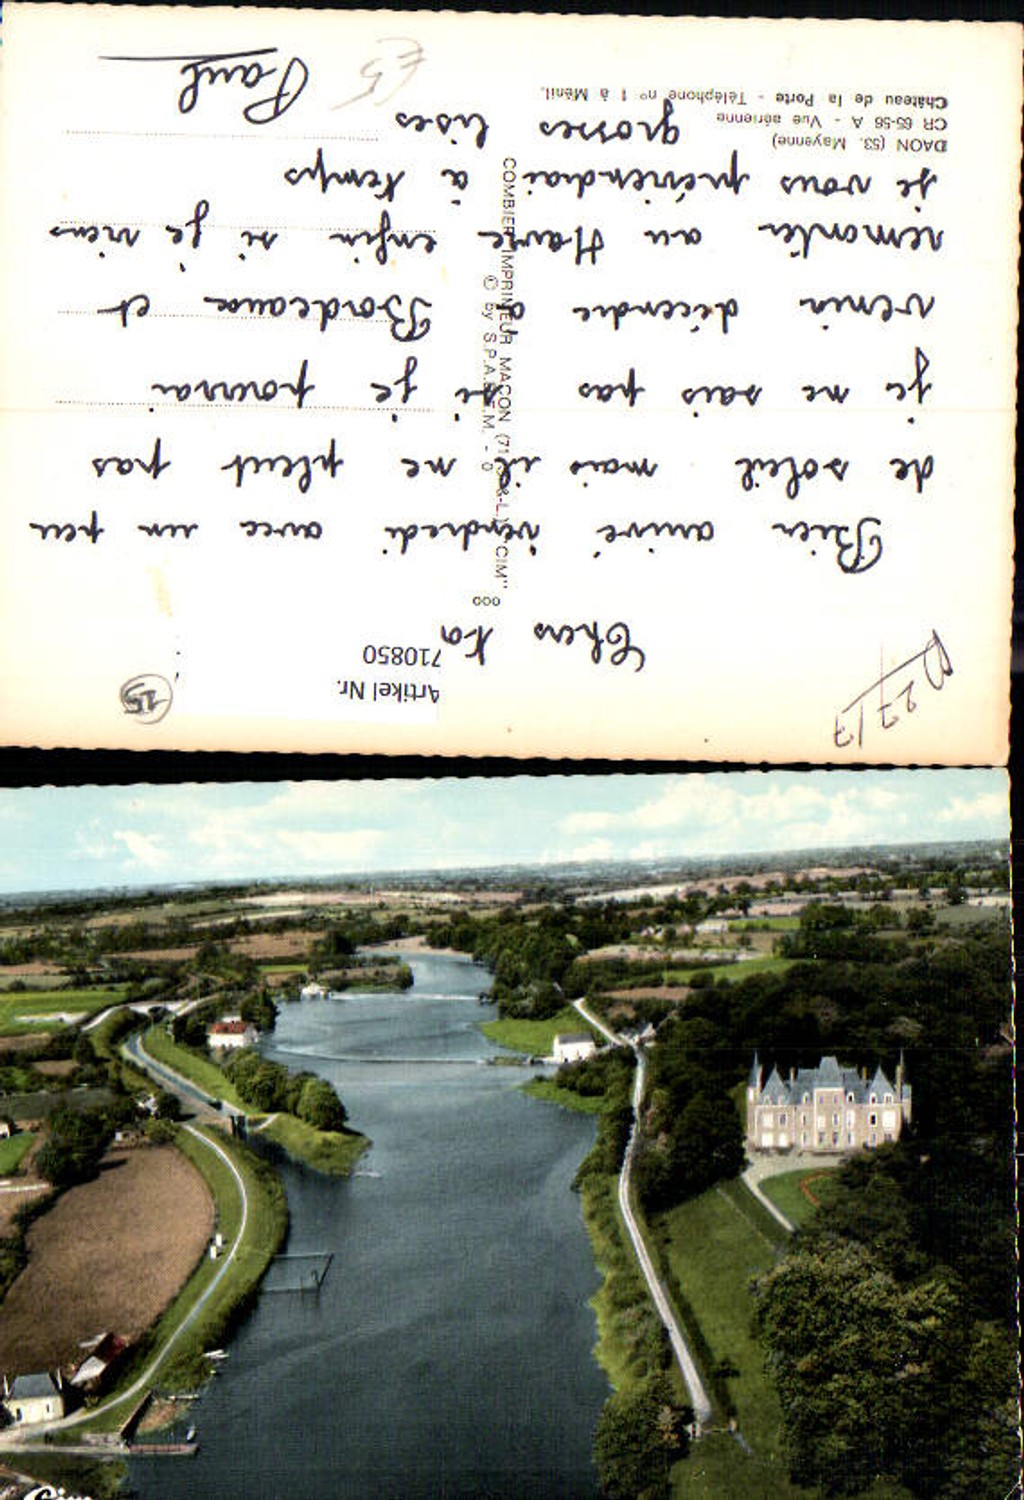 Artikel Nr.
710850
15
27/7
Chers
Bien arrivé vendredi avec un peu
de soleil mais il ne pleut pas
je ne sais pas si je pourrai
venir décendre à Bordeaux et
remonter au Havre enfin si je viens
je vous préviendrai à temps
grosses bises
Paul
DAON (53. Mayenne)
CR 65-56 A - Vue aérienne
Château de la Porte - Téléphone n° 1 à Ménil.
COMBIER IMPRIMEUR MACON (71 S.-&-L.) "CIM"
© by S.P.A.D.E.M. -
000
€5
Cim